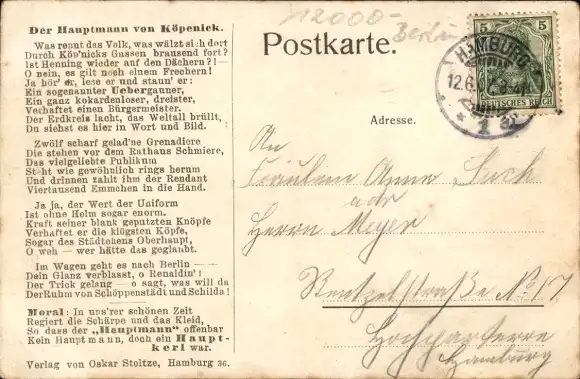 Der Hauptmann von Köpenick.
Was rennt das Volk, was wälzt sich dort
Durch Köp'nicks Gassen brausend fort?
Ist Henning wieder auf den Dächern? ! —
O nein, es gilt noch einem Frechern!
Ja hör' er, lese er und staun' er:
Ein sogenannter Uebergauner,
Ein ganz kokardenloser, dreister,
Verhaftet einen Bürgermeister.
Der Erdkreis lacht, das Weltall brüllt,
Du siehst es hier in Wort und Bild.
Zwölf scharf gelad'ne Grenadiere
Die stehen vor dem Rathaus Schmiere,
Das vielgeliebte Publikum
Steht wie gewöhnlich rings herum
Und drinnen zahlt ihm der Rendant
Viertausend Emmchen in die Hand.
Ja ja, der Wert der Uniform
Ist ohne Helm sogar enorm.
Kraft seiner blank geputzten Knöpfe
Verhaftet er die klügsten Köpfe,
Sogar des Städtchens Oberhaupt,
O weh — wer hätte das geglaubt.
Im Wagen geht es nach Berlin —
Dein Glanz verblasst, o Renaldin' !
Der Trick gelang — o sagt, was will da
Der Ruhm von Schöppenstädt und Schilda !
Moral: In uns'rer schönen Zeit
Regiert die Schärpe und das Kleid,
So dass der „Hauptmann" offenbar
Kein Hauptmann, doch ein Haupt-
kerl war.
Verlag von Oskar Stoltze, Hamburg 36.
12000-
Berlin
Postkarte.
Adresse.
5 5
DEUTSCHES REICH
HAMBURG
12.6.
An
Fräulein Anna Suck
adr
Herrn Meyer
Rentzelstraße No 17
Hochparterre
Hamburg